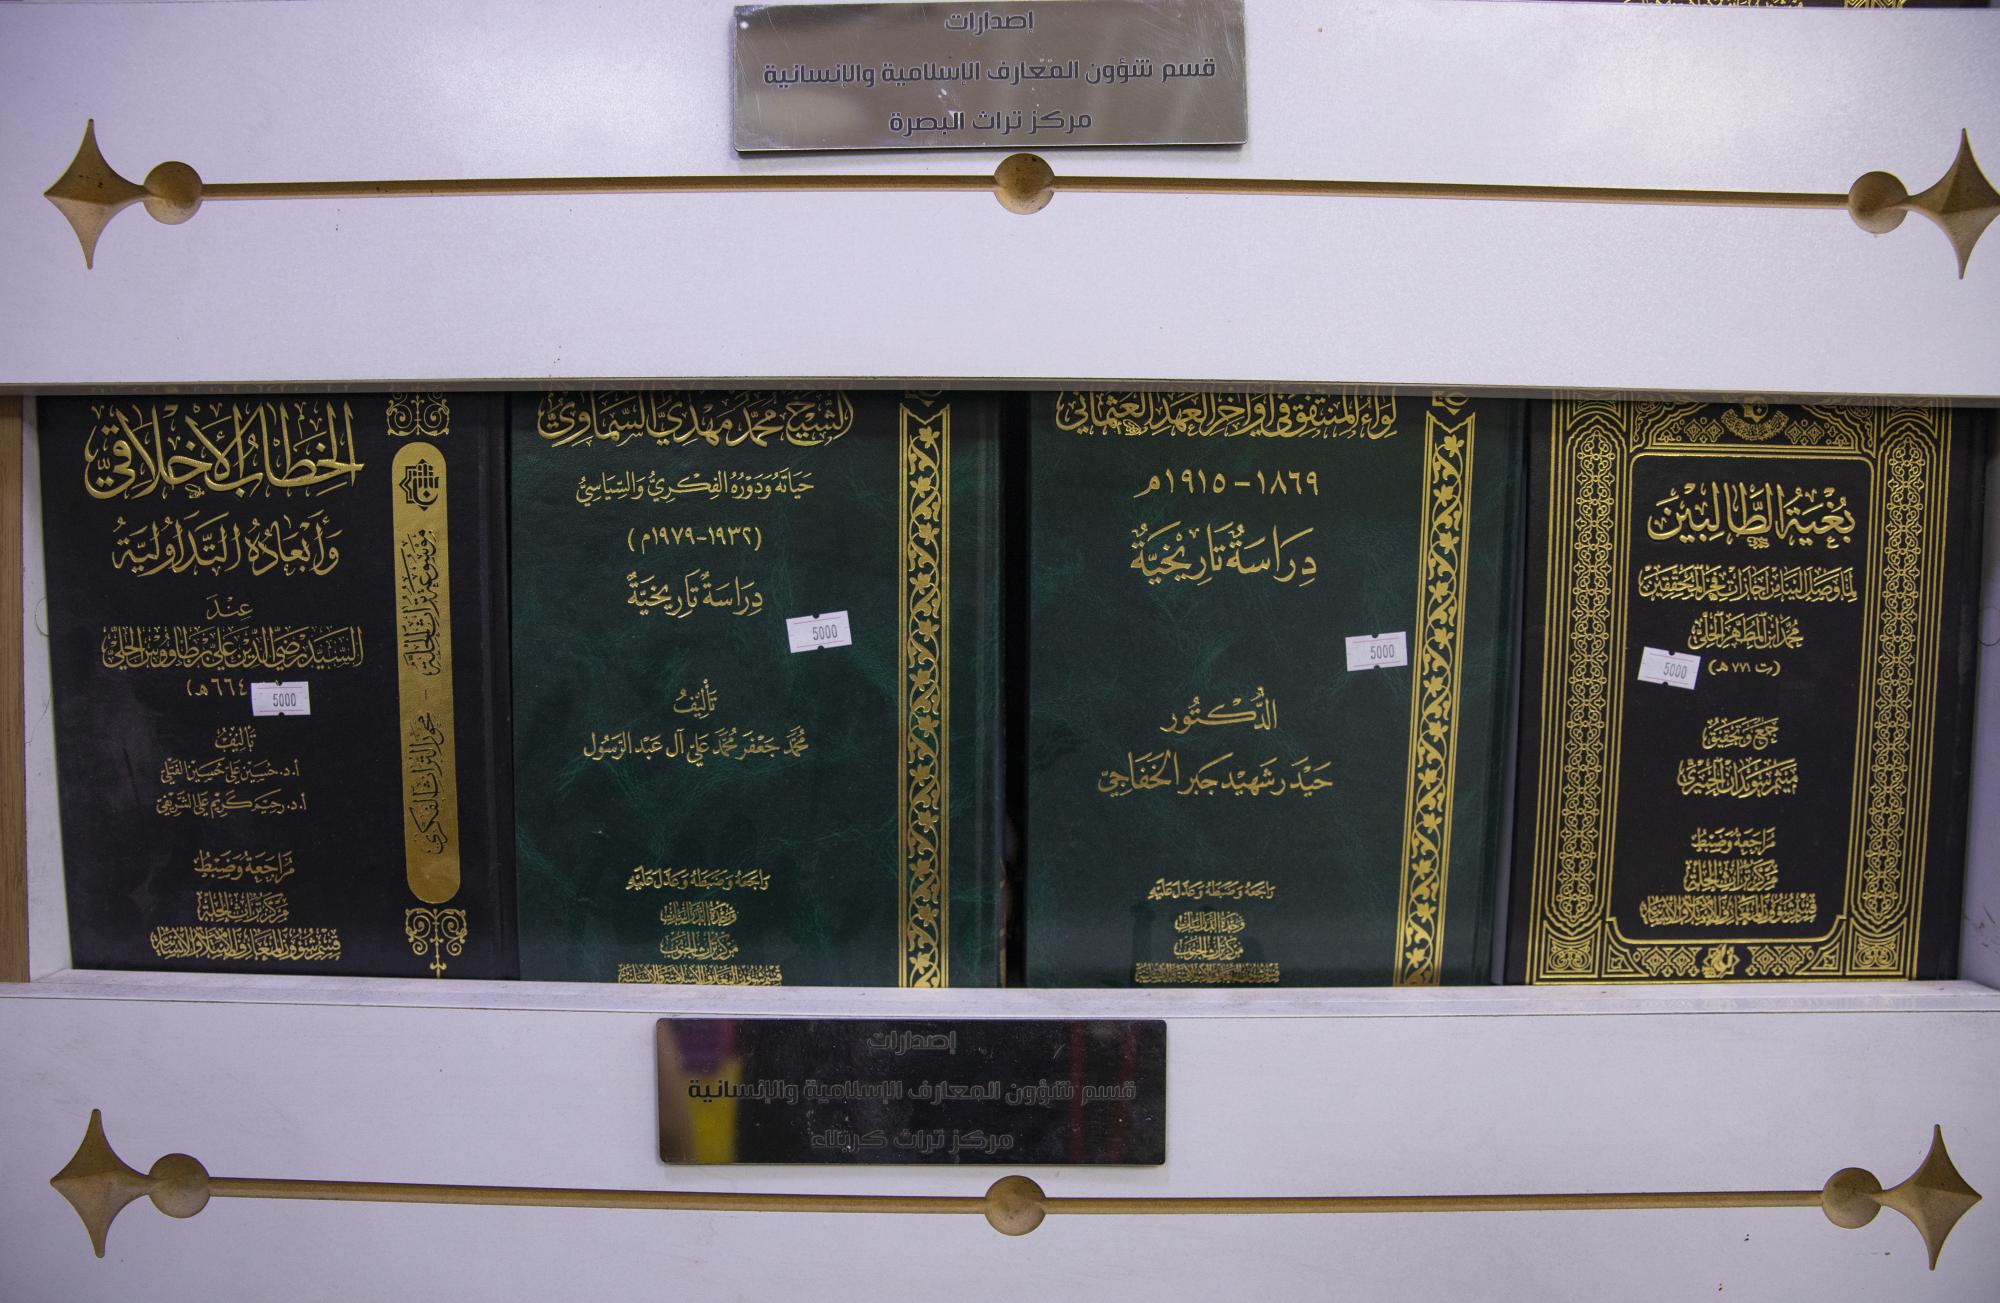 إصدارات
قسم شؤون المعارف الإسلامية والإنسانية
مركز تراث البصرة
بُغْيَةُ الطَّالِبِيْنَ
مُحَمَّد ابْنِ المُطَهَّرِ الحِلِّيّ
(ت ٧٧١ هـ)
5000
جَمْعُ وَتَحْقِيْقُ
مُرَاجَعَةُ وَضَبْطُ
مَرْكَزِ تُرَاثِ الحِلَّةِ
قِسْمُ شُؤُوْنِ المَعَارِفِ الإِسْلَامِيَّةِ وَالإِنْسَانِيَّةِ
لِوَاءُ المُنْتَفِقِ فِي أَوَاخِرِ العَهْدِ العُثْمَانِيِّ
١٨٦٩ - ١٩١٥م
دِرَاسَةٌ تَارِيْخِيَّةٌ
5000
الدُّكْتُور
حَيْدَر شَهِيْد جَبْر الخَفَاجِيّ
رَاجَعَهُ وَضَبَطَهُ وَعَلَّقَ عَلَيْهِ
وَحْدَةُ الدِّرَاسَاتِ
مَرْكَزُ تُرَاثِ الجَنُوبِ
قِسْمُ شُؤُوْنِ المَعَارِفِ الإِسْلَامِيَّةِ وَالإِنْسَانِيَّةِ
الشَّيْخُ مُحَمَّد مَهْدِيّ السَّمَاوِيّ
حَيَاتُهُ وَدَوْرُهُ الفِكْرِيُّ وَالسِّيَاسِيُّ
(١٩٣٢-١٩٧٩م)
دِرَاسَةٌ تَارِيخِيَّةٌ
5000
تَأْلِيْفُ
مُحَمَّد جَعْفَر مُحَمَّد عَلِيّ آل عَبْد الرَّسُول
رَاجَعَهُ وَضَبَطَهُ وَعَلَّقَ عَلَيْهِ
وَحْدَةُ الدِّرَاسَاتِ
مَرْكَزُ تُرَاثِ الجَنُوبِ
قِسْمُ شُؤُوْنِ المَعَارِفِ الإِسْلَامِيَّةِ وَالإِنْسَانِيَّةِ
الخِطَابُ الأَخْلَاقِيّ
وَأَبْعَادُهُ التَّدَاوُلِيَّةُ
عِنْدَ
السَّيِّد رَضِيّ الدِّيْن عَلِيّ بْن طَاوُوْس الحِلِّيّ
٦٦٤ هـ)
5000
تَأْلِيْفُ
أ.د. حُسَيْن عَلِي حُسَيْن الفَتْلِي
أ.د. رَحِيْم كَرِيْم عَلِي الشَّرِيْفِي
مُرَاجَعَةُ وَضَبْطُ
مَرْكَزِ تُرَاثِ الحِلَّةِ
قِسْمُ شُؤُوْنِ المَعَارِفِ الإِسْلَامِيَّةِ وَالإِنْسَانِيَّةِ
مَوْسُوعَةُ تُرَاثِ الحِلَّةِ - مِحْوَرُ التُّرَاثِ الفِكْرِيّ
إصدارات
قسم شؤون المعارف الإسلامية والإنسانية
مركز تراث كربلاء